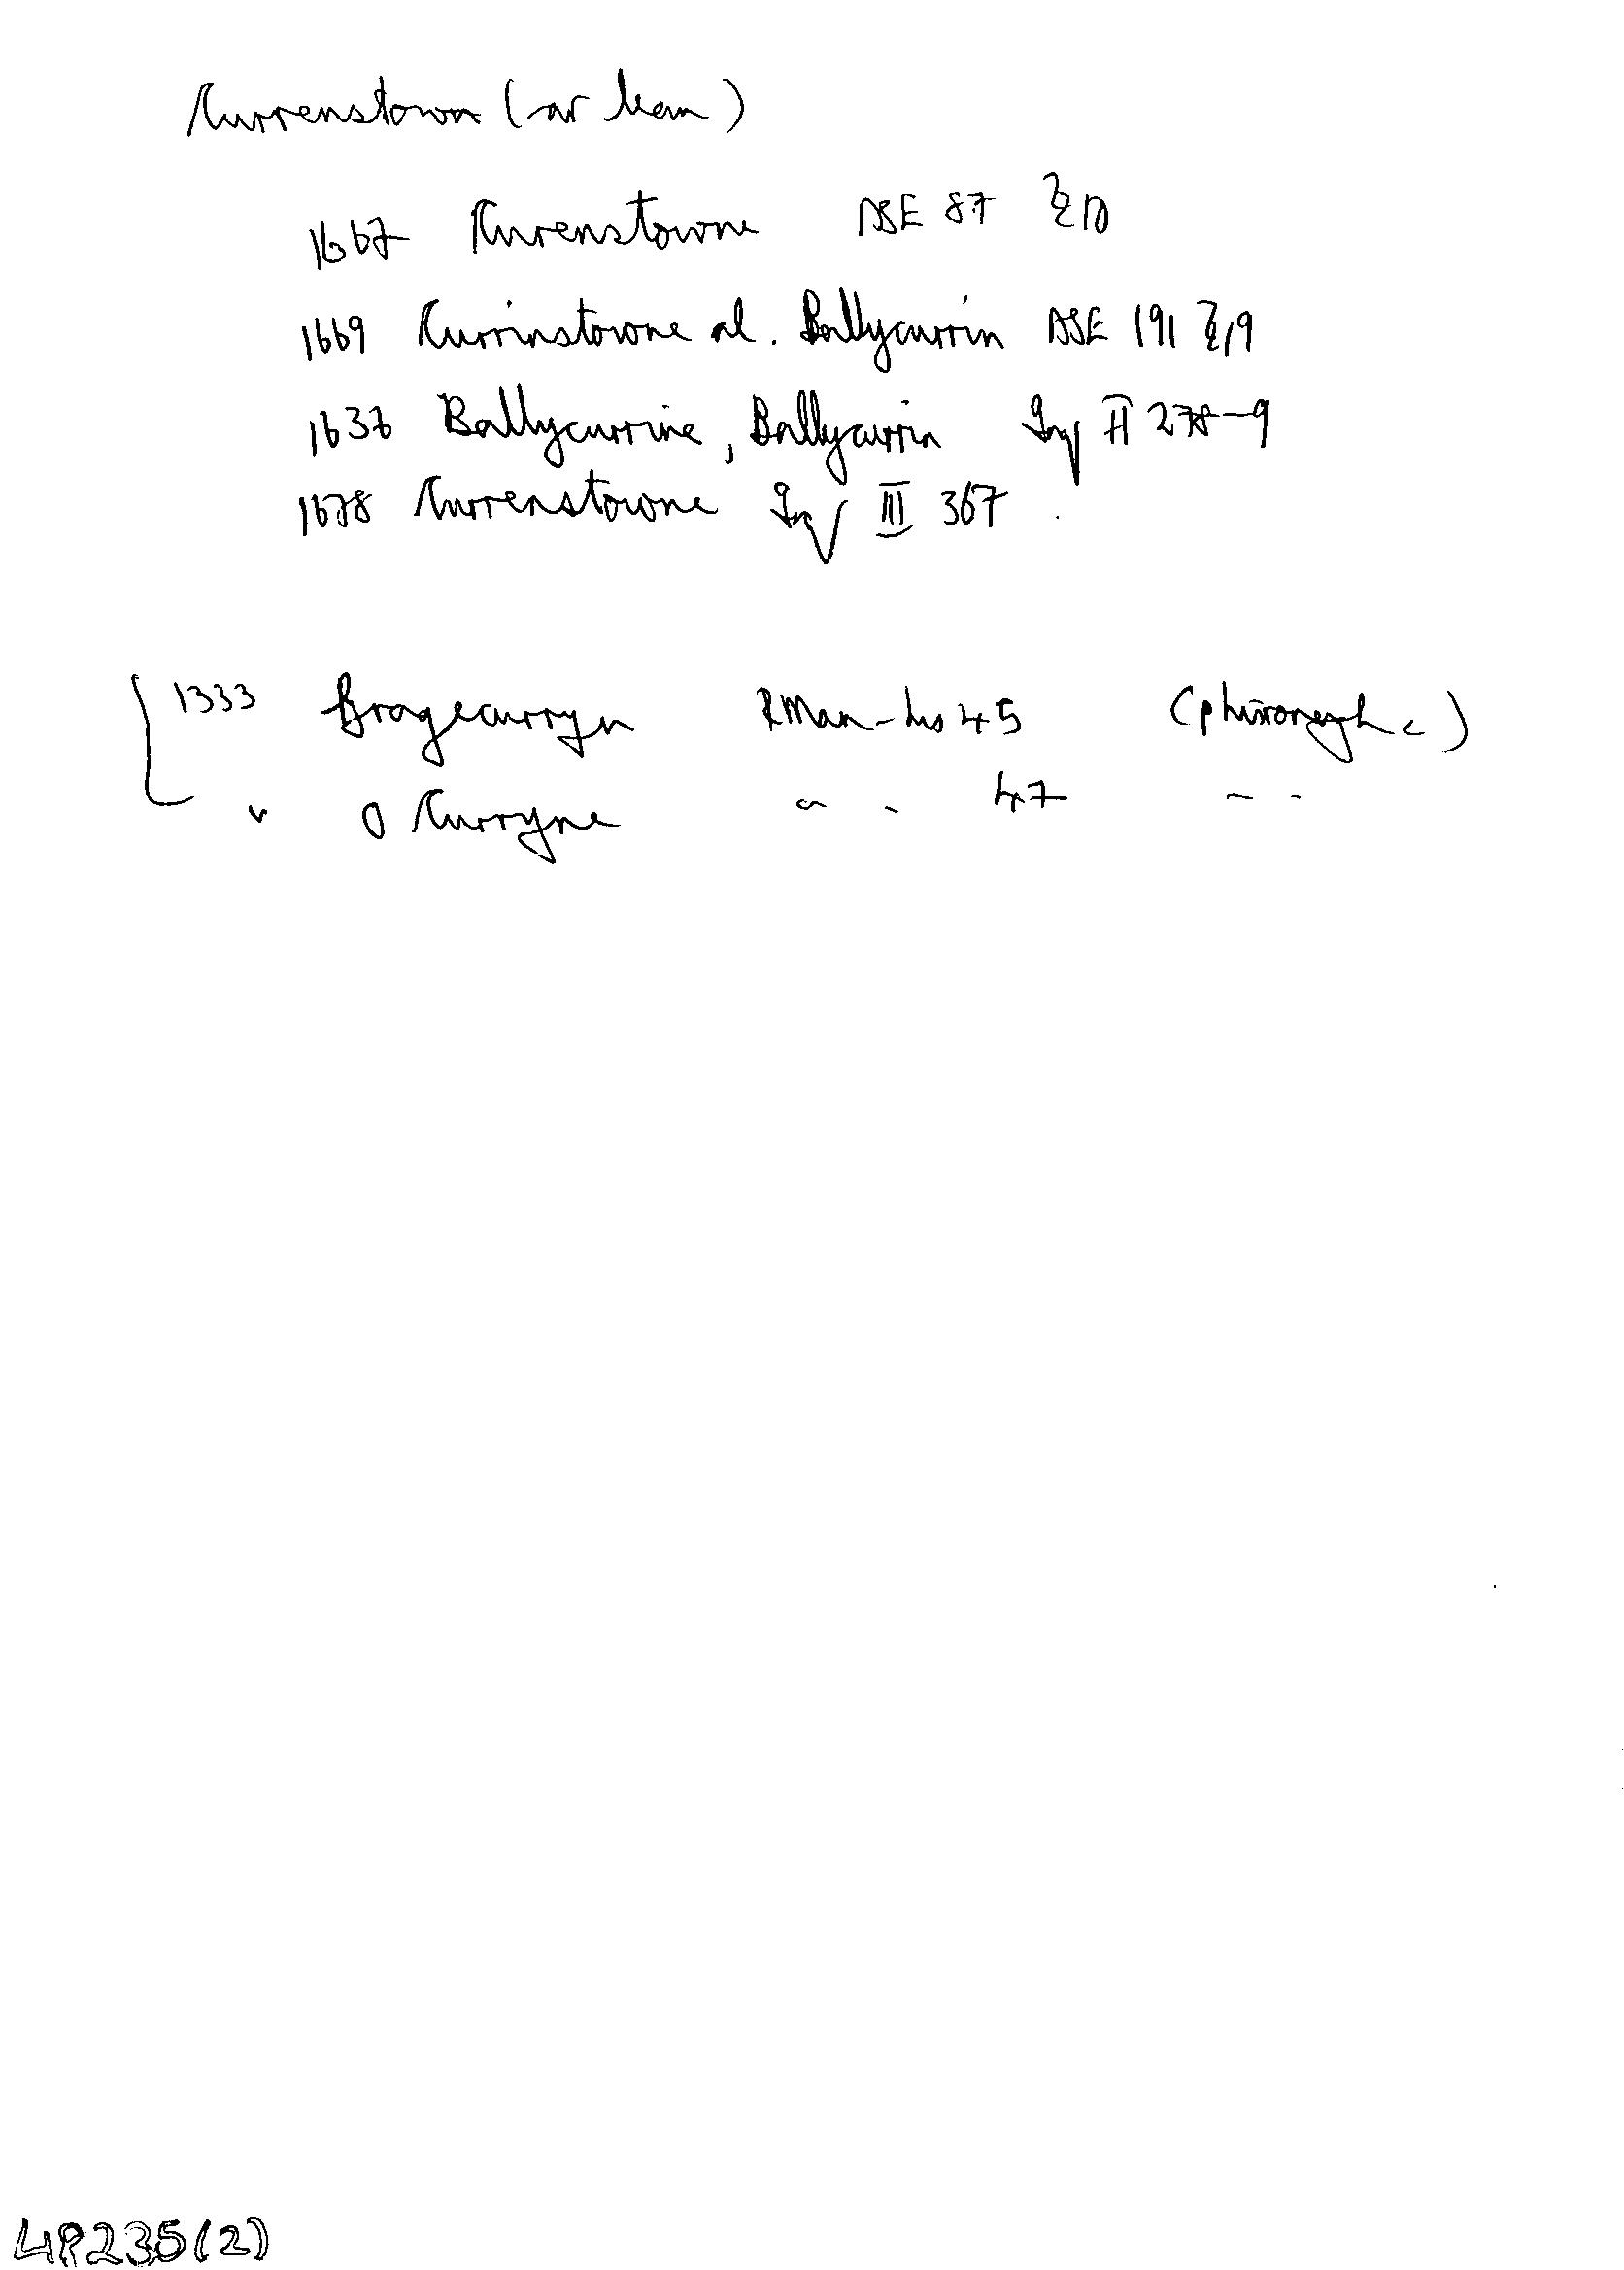 Currenstown (ar lean)
1667 Curenstowne ASE 87 § 10
1669 Currinstowne al. Ballycurrin ASE 191 § 19
1636 Ballycurrine, Ballycurrin Inq II 278-9
1678 Currenstowne Inq III 367
1333 Bragecurryn RMan-his 45
" O Curryne " " 47 " "
LP235(2)